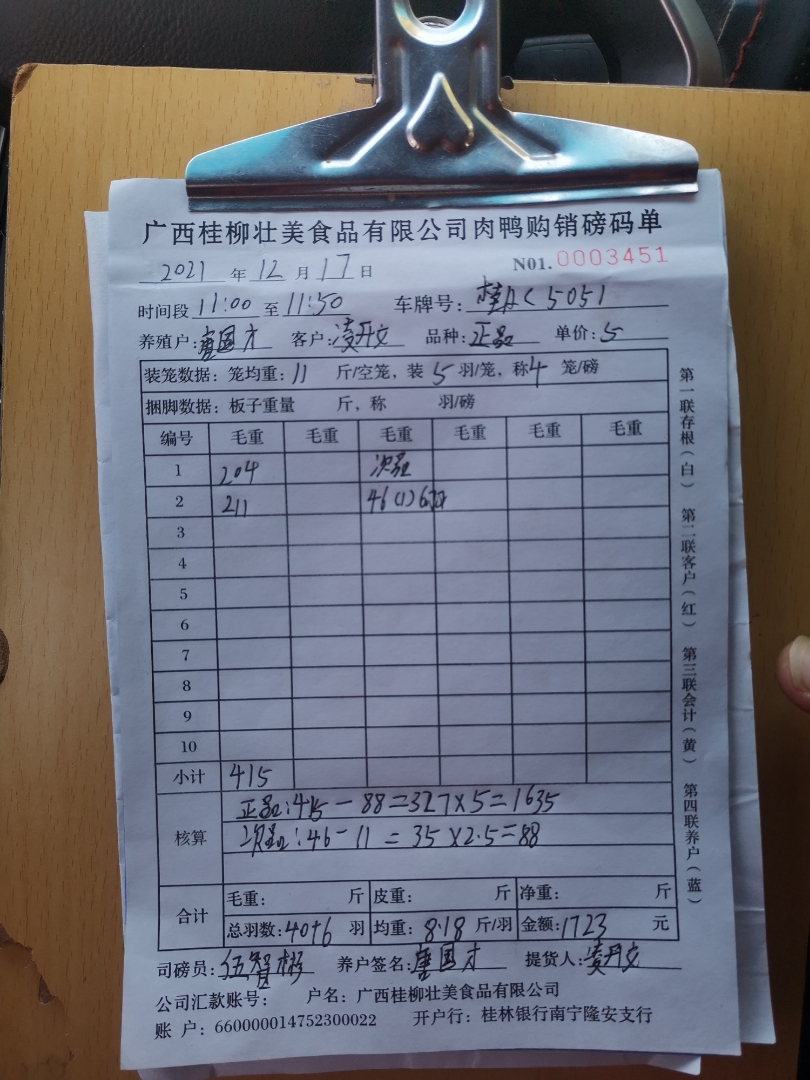 广西桂柳壮美食品有限公司肉鸭购销磅码单
2021 年 12 月 17 日 N01. 0003451
时间段 11:00 至 11:50 车牌号: 桂A 5051
养殖户: 唐国才 客户: 凌开文 品种: 正品 单价: 5
装笼数据: 笼均重: 11 斤/空笼, 装 5 羽/笼, 称 4 笼/磅
捆脚数据: 板子重量 斤, 称 羽/磅
编号 毛重 毛重 毛重 毛重 毛重 毛重
1 204 次品
2 211 46(1)6羽
3
4
5
6
7
8
9
10
小计 415
核算 正品: 415 - 88 = 327 × 5 = 1635
次品: 46 - 11 = 35 × 2.5 = 88
合计 毛重: 斤 皮重: 斤 净重: 斤
总羽数: 40+6 羽 均重: 8.18 斤/羽 金额: 1723 元
司磅员: 伍智彬 养户签名: 唐国才 提货人: 凌开文
公司汇款账号: 户名: 广西桂柳壮美食品有限公司
账 户: 660000014752300022 开户行: 桂林银行南宁隆安支行
第一联存根(白) 第二联客户(红) 第三联会计(黄) 第四联养户(蓝)